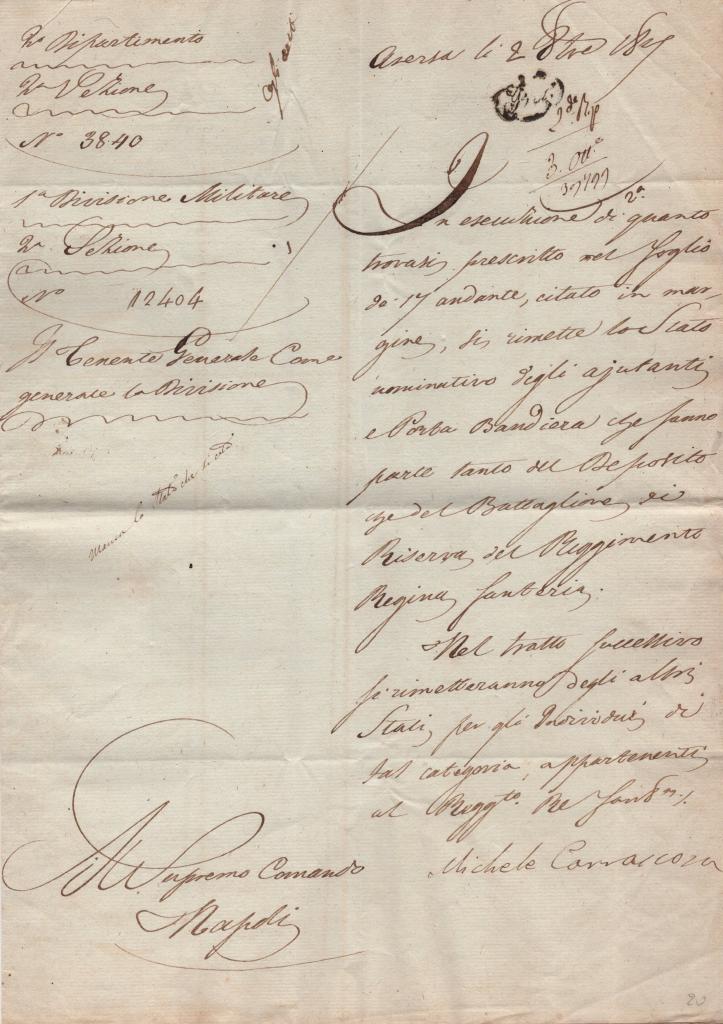 2º Dipartimento
2ª Sezione
Nº 3840
1ª Divisione Militare
2ª Sezione
Nº 12404
Il Tenente Generale Come
generale la Divisione
Aversa li 2 8bre
In esecuzione di quanto
trovasi prescritto nel foglio
de 17 andante, citato in mar-
gine, si rimette lo Stato
nominativo degli ajutanti
e Porta Bandiera che fanno
parte tanto del Deposito
che del Battaglione di
Riserva del Reggimento
Regina fanteria.
Nel tratto successivo
si rimetteranno degli altri
Stati per gli Individui di
tal categoria, appartenenti
al Reggto. Re
Michele Carrascosa
Al Supremo Comando
Napoli
20